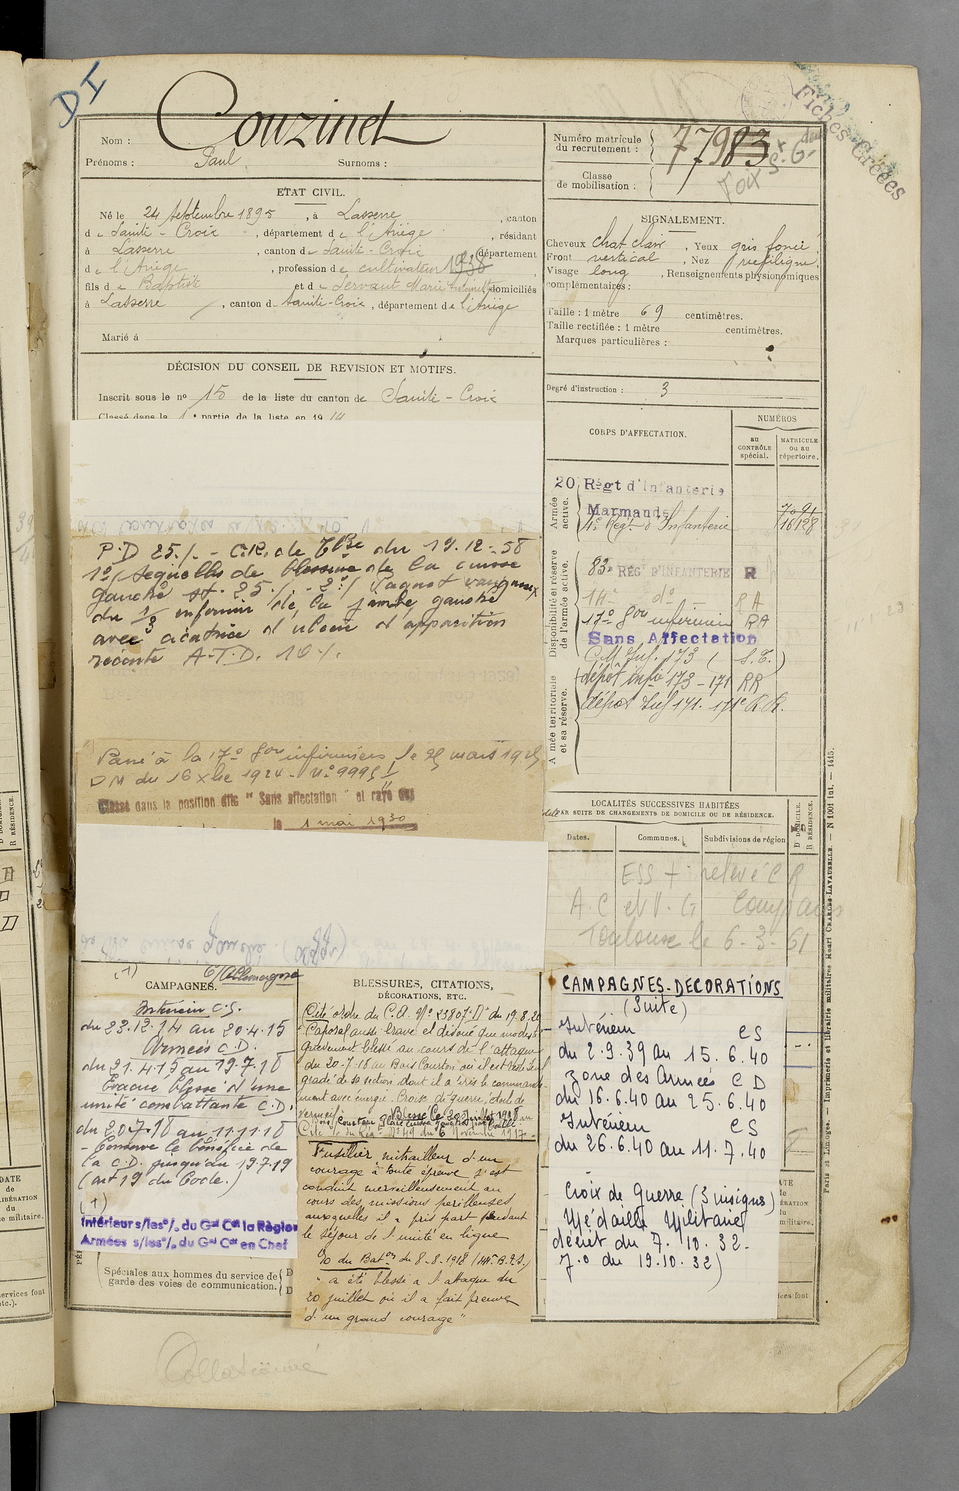 DI
Fiches Créées
Nom : Couzinet
Prénoms : Paul Surnoms :
Numéro matricule du recrutement : 77983
Classe de mobilisation :
Voir
ETAT CIVIL.
Né le 24 Septembre 1895, à Lasserre, canton
de Sainte-Croix, département de l'Ariège, résidant
à Lasserre, canton de Sainte-Croix, département
de l'Ariège, profession de cultivateur 1938
fils de Baptiste et de Servant Marie domiciliés
à Lasserre, canton de Sainte-Croix, département de l'Ariège
Marié à
SIGNALEMENT.
Cheveux chat clair, Yeux gris foncé
Front vertical, Nez rectiligne
Visage long, Renseignements physionomiques
complémentaires :
Taille : 1 mètre 69 centimètres.
Taille rectifiée : 1 mètre centimètres.
Marques particulières :
Degré d'instruction : 3
DÉCISION DU CONSEIL DE REVISION ET MOTIFS.
Inscrit sous le no 15 de la liste du canton de Sainte-Croix
Classé dans la 1e partie de la liste en 1914
P.D 25% - C.R. de Tlse du 19.12-58
1o/ Séquelles de blessure de la cuisse
gauche 25. 2o/ Paquet variqueux
du 1/3 inférieur de la jambe gauche
avec cicatrice d'ulcère d'apparition
récente A.T.D. 10%.
Passé à la 17e Son infirmiers le 25 mars 192
DM du 16 Xbre 1924 - No 9995
Classé dans la position dite "Sans affectation" et rayé des
le 1 mai 1930
CORPS D'AFFECTATION.
NUMÉROS
au CONTRÔLE spécial.
MATRICULE ou au répertoire.
Armée active.
20 Régt d'Infanterie
Marmande
4e Régt d'Infanterie
7091
16128
Disponibilité et réserve de l'armée active.
83e RÉGt D'INFANTERIE R
14e do RA
17e Son infirmiers RA
Sans Affectation
Armée territoriale et sa réserve.
Inf. 173 (S.E.)
dépôt infie 173-171 RR
dépôt Inf 171. 171e R.R.
LOCALITÉS SUCCESSIVES HABITÉES
PAR SUITE DE CHANGEMENTS DE DOMICILE OU DE RÉSIDENCE.
Dates. Communes. Subdivisions de région
D DOMICILE.
R RÉSIDENCE.
ESS + relevé C R
A.C et V.G
Toulouse le 6-3-61
Paris et Limoges. — Imprimerie et librairie militaires Henri CHARLES-LAVAUZELLE. — N 1001 int. — 1415.
(1) C/Allemagne
CAMPAGNES.
Intérieur C.S.
du 23.12.14 au 20.4.15
Armées C.D.
du 21.4.15 au 19.7.18
Evacué blessé d'une
unité combattante C.D.
du 20.7.18 au 11.11.18
- Conserve le bénéfice de
la C.D. jusqu'au 19.7.19
(art 19 du Code.)
(1)
Intérieur s/les o/. du Gal Ct la Région
Armées s/les o/. du Gal Ct en Chef
Spéciales aux hommes du service de
garde des voies de communication.
BLESSURES, CITATIONS,
DÉCORATIONS, ETC.
Cité ordre du C.A. No 23807.D du 19.8.20
"Caporal aussi brave et dévoué que modeste
grièvement blessé au cours de l'attaque
du 20-7-18 au Bois Courton où il est resté seul
gradé de sa section dont il a pris le commande-
ment avec énergie. Croix de guerre, étoile de
vermeil.
Blessé le 20 Juillet 1918 au
Cité No 49 du 6 Novembre 1917
Fusilier mitrailleur d'un
courage à toute épreuve s'est
conduit merveilleusement au
cours des missions périlleuses
auxquelles il a pris part pendant
le séjour de l'unité en ligne
O/o du Baton du 8-8-1918
"a été blessé à l'attaque du
20 juillet où il a fait preuve
d'un grand courage"
CAMPAGNES-DECORATIONS
(Suite)
Intérieur CS
du 2.9.39 au 15.6.40
zone des Armées C D
du 16.6.40 au 25.6.40
Intérieur CS
du 26.6.40 au 11.7.40
Croix de Guerre (3 insignes)
Médaille Militaire
décret du 7.10.32.
J.o du 19.10.32)
Collationné